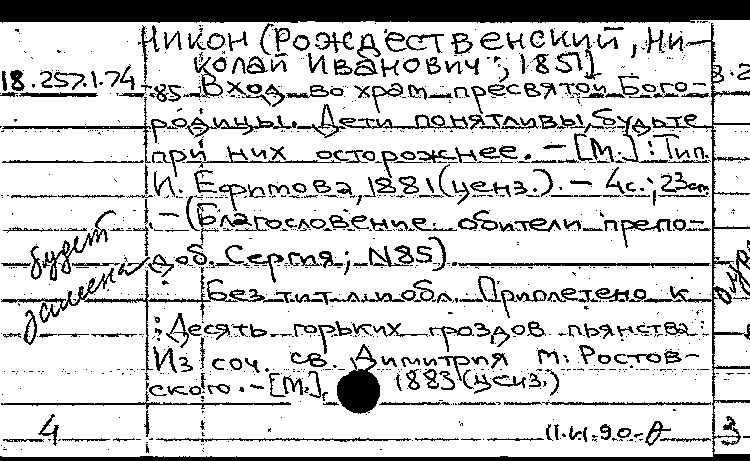 Никон (Рождественский, Ни-
колай Иванович; 1851]
18.257.1.74-
85. Вход во храм пресвятой Бого-
родицы. Дети понятливы, будьте
при них осторожнее. – [М.]: Тип.
И. Ефимова, 1881 (ценз.). – 4с.; 23см
. – (Благословение обители препо-
доб. Сергия; N85).
будет
замена
Без тит. л. и обл. Приплетено к
: Десять горьких гроздов пьянства:
Из соч. св. Димитрия м. Ростов-
ского. – [М.], 1883 (ценз.)
4
3